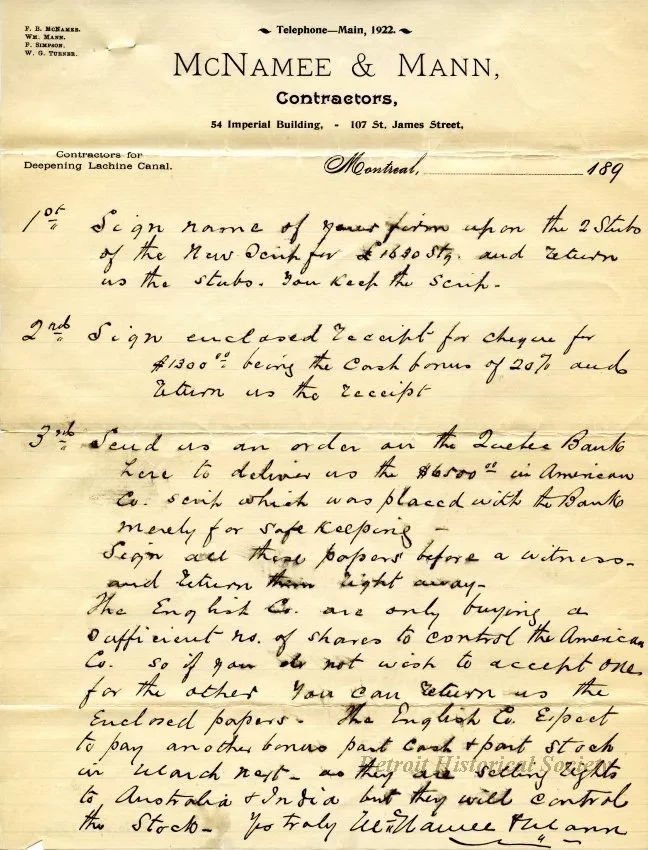 F. B. McNamee.
Wm. Mann.
F. Simpson.
W. G. Turner.
Telephone—Main, 1922.
McNamee & Mann,
Contractors,
54 Imperial Building, - 107 St. James Street,
Contractors for
Deepening Lachine Canal.
Montreal, 189
1st Sign name of your firm upon the 2 Stubs
of the New Scrip for £1630 Stg. and return
us the stubs. You keep the Scrip-
2nd Sign enclosed receipt for cheque for
$1300 00 being the cash bonus of 20% and
return us the receipt
3rd Send us an order on the Quebec Bank
here to deliver us the $6500 00 in American
Co. scrip which was placed with the Bank
merely for safe keeping -
Sign all these papers before a witness-
and return them right away-
The English Co. are only buying a
sufficient no. of shares to control the American
Co. so if you do not wish to accept one
for the other you can return us the
enclosed papers- The English Co. expect
to pay another bonus part cash & part stock
in March next- as they are selling rights
to Australia & India but they will control
the stock- Yrs truly McNamee & Mann
Detroit Historical Society